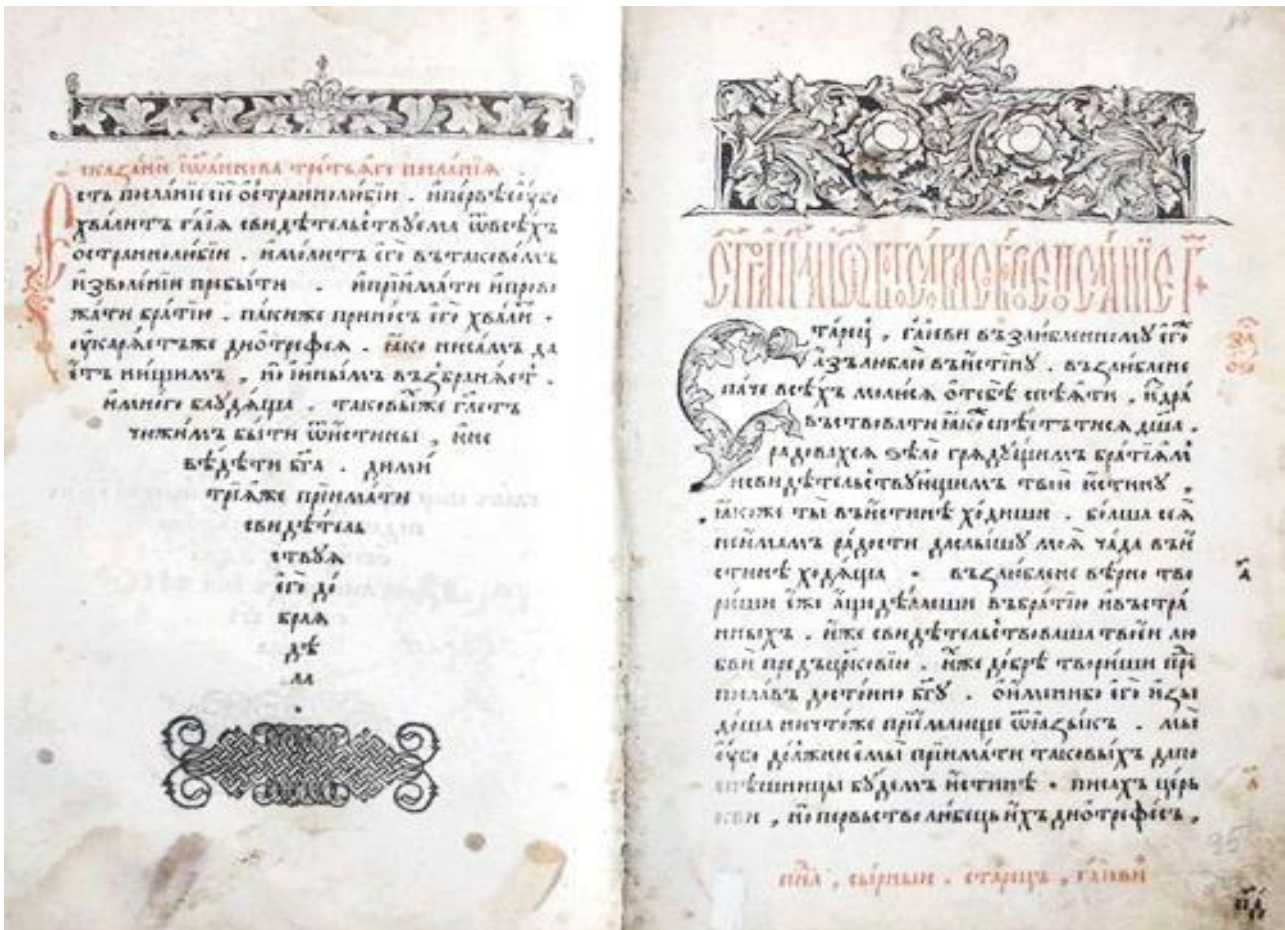 сказанїе їѡ҃аннова третьѧго посланїѧ
Есть посланїе сїе ѻ҆страннолюбїи . и҆первѣеоу҆бо
хвалитъ гаїѧ свидѣтельствуема ѿвсѣхъ
ѻ҆страннолюбїи . и҆молитъ его̀ вътаковомъ
и҆зволенїи пребыти . и҆прїимати и҆прово
жати братїю . пакиже приносъ его̀ хвали .
оу҆карѧетъже дїотрефесѧ . ꙗко нисамъ да
етъ нищимъ , но̀ и҆нымъ възбранѧет .
и҆много блудѧща . таковыѧже гл҃етъ
чюжимъ быти ѿи҆стины , и҆не
вѣдѣти бг҃а . дими
трїѧже прїимати
свидѣтель
ствуѧ
его̀ до
браѧ
дѣ
ла
тарец , гаїеви възлюбленному его҆
а҆зълюблю въи҆стіну . възлюблене
паче всѣхъ молюсѧ ѻ҆тебѣ спѣѧти , и҆здра
въствовати ꙗко спѣетътисѧ дш҃а .
радовахсѧ ѕѣло грѧдущимъ братїѧм
исвидѣтельствующимъ твою и҆стину ,
ꙗкоже ты въи҆стинѣ ходиши . больша сеѧ
неи҆мамъ радости даслышу моѧ чада въи҆
стинѣ ходѧща . възлюблене вѣрно тво
риши еже аще дѣлаеши въбратїю ивъстра
нныхъ . и҆же свидѣтельствоваша твоей лю
бви предъцр҃ковїю . и҆хже добрѣ твориши пре
пославъ достоино бг҃у . ѻ҆именибо его̀ и҆зы
доша ничтоже прїемлюще ѿꙗзыкъ . мы
оу҆бо должни есмы прїимати таковыхъ дапо
спѣшницы будемъ и҆стинѣ . писахъ церь
кви , но̀ первьстволюбець и҆хъ дїотрефесъ ,
сырныи . старецъ , гаїеви